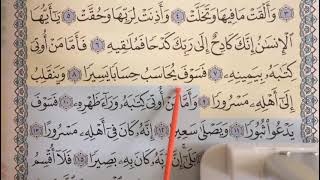 ﴿٣﴾ وَأَلْقَتْ مَا فِيهَا وَتَخَلَّتْ ﴿٤﴾ وَأَذِنَتْ لِرَبِّهَا وَحُقَّتْ ﴿٥﴾ يَٰٓأَيُّهَا
ٱلْإِنسَٰنُ إِنَّكَ كَادِحٌ إِلَىٰ رَبِّكَ كَدْحًا فَمُلَٰقِيهِ ﴿٦﴾ فَأَمَّا مَنْ أُوتِىَ
كِتَٰبَهُۥ بِيَمِينِهِۦ ﴿٧﴾ فَسَوْفَ يُحَاسَبُ حِسَابًا يَسِيرًا ﴿٨﴾ وَيَنقَلِبُ
إِلَىٰٓ أَهْلِهِۦ مَسْرُورًا ﴿٩﴾ وَأَمَّا مَنْ أُوتِىَ كِتَٰبَهُۥ وَرَآءَ ظَهْرِهِۦ ﴿١٠﴾ فَسَوْفَ
يَدْعُوا۟ ثُبُورًا ﴿١١﴾ وَيَصْلَىٰ سَعِيرًا ﴿١٢﴾ إِنَّهُۥ كَانَ فِىٓ أَهْلِهِۦ مَسْرُورًا ﴿١٣﴾
بَلَىٰٓ إِنَّ رَبَّهُۥ كَانَ بِهِۦ بَصِيرًا ﴿١٥﴾ فَلَآ أُقْسِمُ